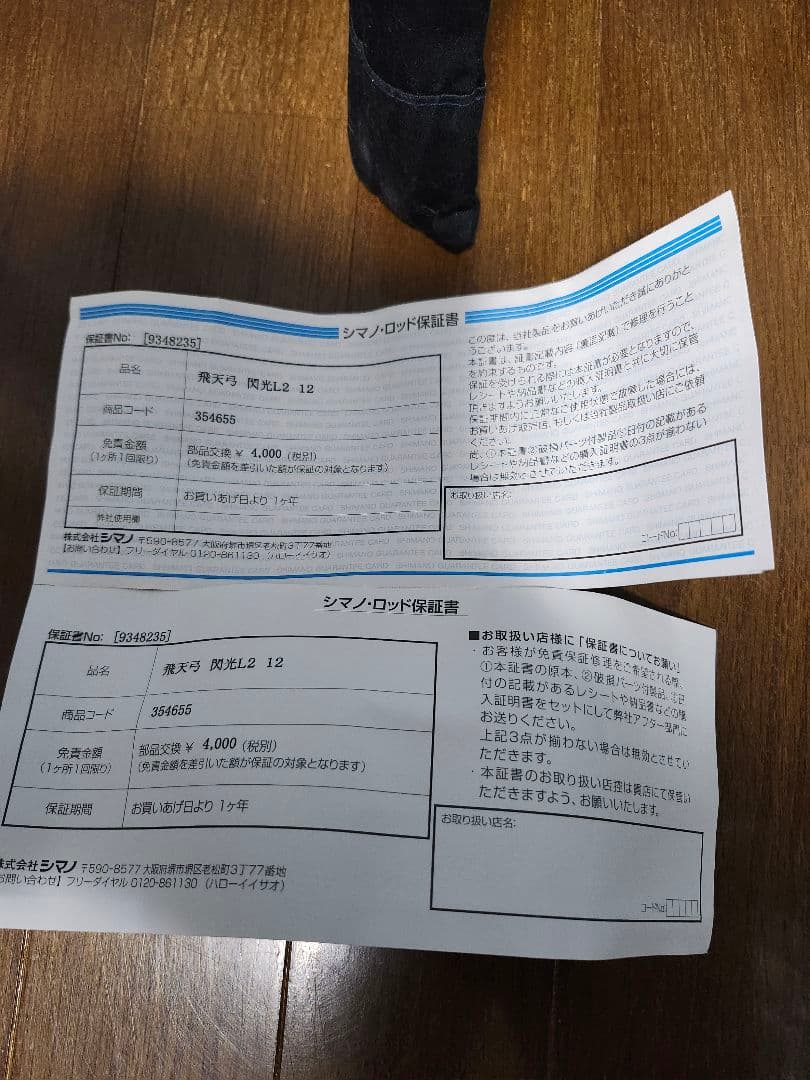 シマノ・ロッド保証書
保証書No: [9348235]
品名 飛天弓 閃光L2 12
商品コード 354655
免責金額
(1ヶ所1回限り)
部品交換 ¥ 4,000 (税別)
(免責金額を差引いた額が保証の対象となります)
保証期間 お買いあげ日より 1ヶ年
弊社使用欄
株式会社シマノ 〒590-8577 大阪府堺市堺区老松町3丁77番地
【お問い合わせ】フリーダイヤル 0120-861130 (ハローイイサオ)
この度は、当社製品をお買いあげいただき誠にありがと
うございます。
本証書は、証書記載内容(裏面記載)で修理を行うこと
を約束するものです。
保証を受けられる際には本証書が必要となりますので、
レシートや納品書などの購入証明書と共に大切に保管
頂きますようお願いいたします。
保証期間内に正常なご使用状態で故障した場合には、
お買いあげ取扱店、もしくは当社製品取扱い店にご依頼
ください。
尚、①本証書②破損パーツ付製品③日付の記載がある
レシートや納品書などの購入証明書の3点が揃わない
場合は無効とさせていただきます。
お取り扱い店名:
コードNo:
SHIMANO GUARANTEE CARD
シマノ・ロッド保証書
保証書No: [9348235]
品名 飛天弓 閃光L2 12
商品コード 354655
免責金額
(1ヶ所1回限り)
部品交換 ¥ 4,000 (税別)
(免責金額を差引いた額が保証の対象となります)
保証期間 お買いあげ日より 1ヶ年
株式会社シマノ 〒590-8577 大阪府堺市堺区老松町3丁77番地
お問い合わせ】フリーダイヤル 0120-861130 (ハローイイサオ)
■お取扱い店様に「保証書についてお願い」
・お客様が免責保証修理をご希望される際、
①本証書の原本、②破損パーツ付製品、③日
付の記載があるレシートや納品書などの購
入証明書をセットにして弊社アフター部門に
お送りください。
上記3点が揃わない場合は無効とさせてい
ただきます。
・本証書のお取り扱い店控は貴店にて保管い
ただきますよう、お願いいたします。
お取り扱い店名:
コードNo: